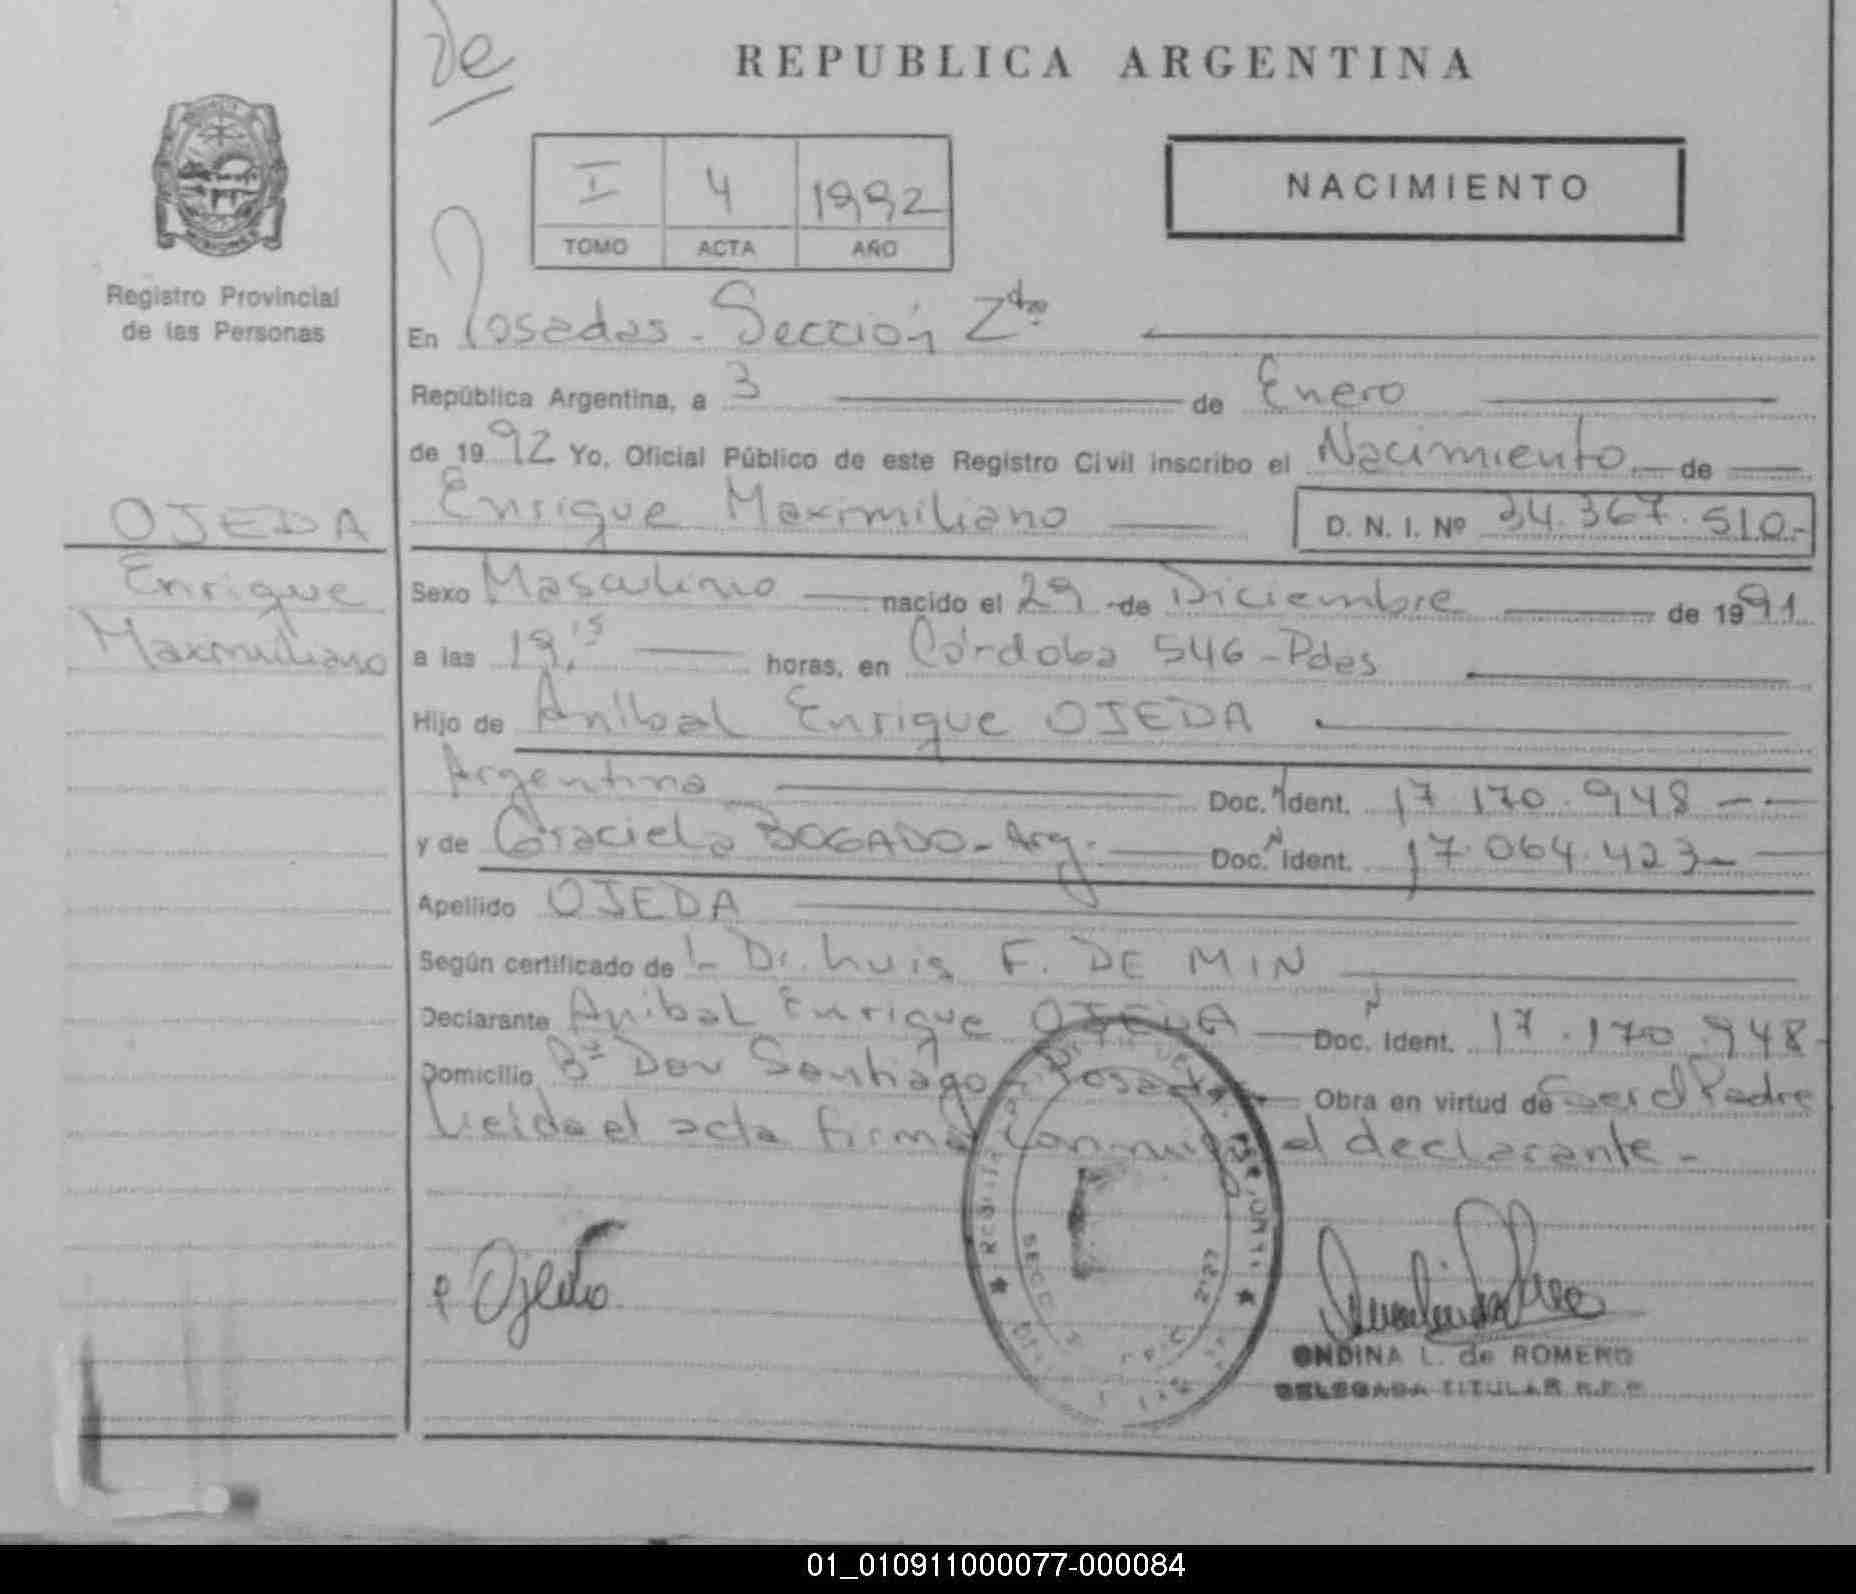 de
REPUBLICA ARGENTINA
I 4 1992
TOMO ACTA AÑO
NACIMIENTO
Registro Provincial
de las Personas
En Posadas - Sección 2da
República Argentina, a 3 de Enero
de 1992 Yo, Oficial Público de este Registro Civil inscribo el Nacimiento de
Enrique Maximiliano D. N. I. Nº 34.367.510.-
OJEDA
Enrique
Maximiliano
Sexo Masculino nacido el 29 de Diciembre de 1991
a las 19,15 horas, en Córdoba 546 - Pdas
Hijo de Anibal Enrique OJEDA
Argentino Doc. Ident. 17.170.948 - -
y de Graciela BOGADO - Arg. Doc. Ident. 17.064.423 -
Apellido OJEDA
Según certificado de l Dr. Luis F. DE MIN
Declarante Anibal Enrique OJEDA Doc. Ident. 17.170.948 -
Domicilio Bº Don Santiago - Posadas Obra en virtud de Ser el Padre
Leida el acta firma conmigo el declarante -
Ojeda
SECC
ONDINA L. de ROMERO
DELEGADA TITULAR R.P.P.
01_010911000077-000084